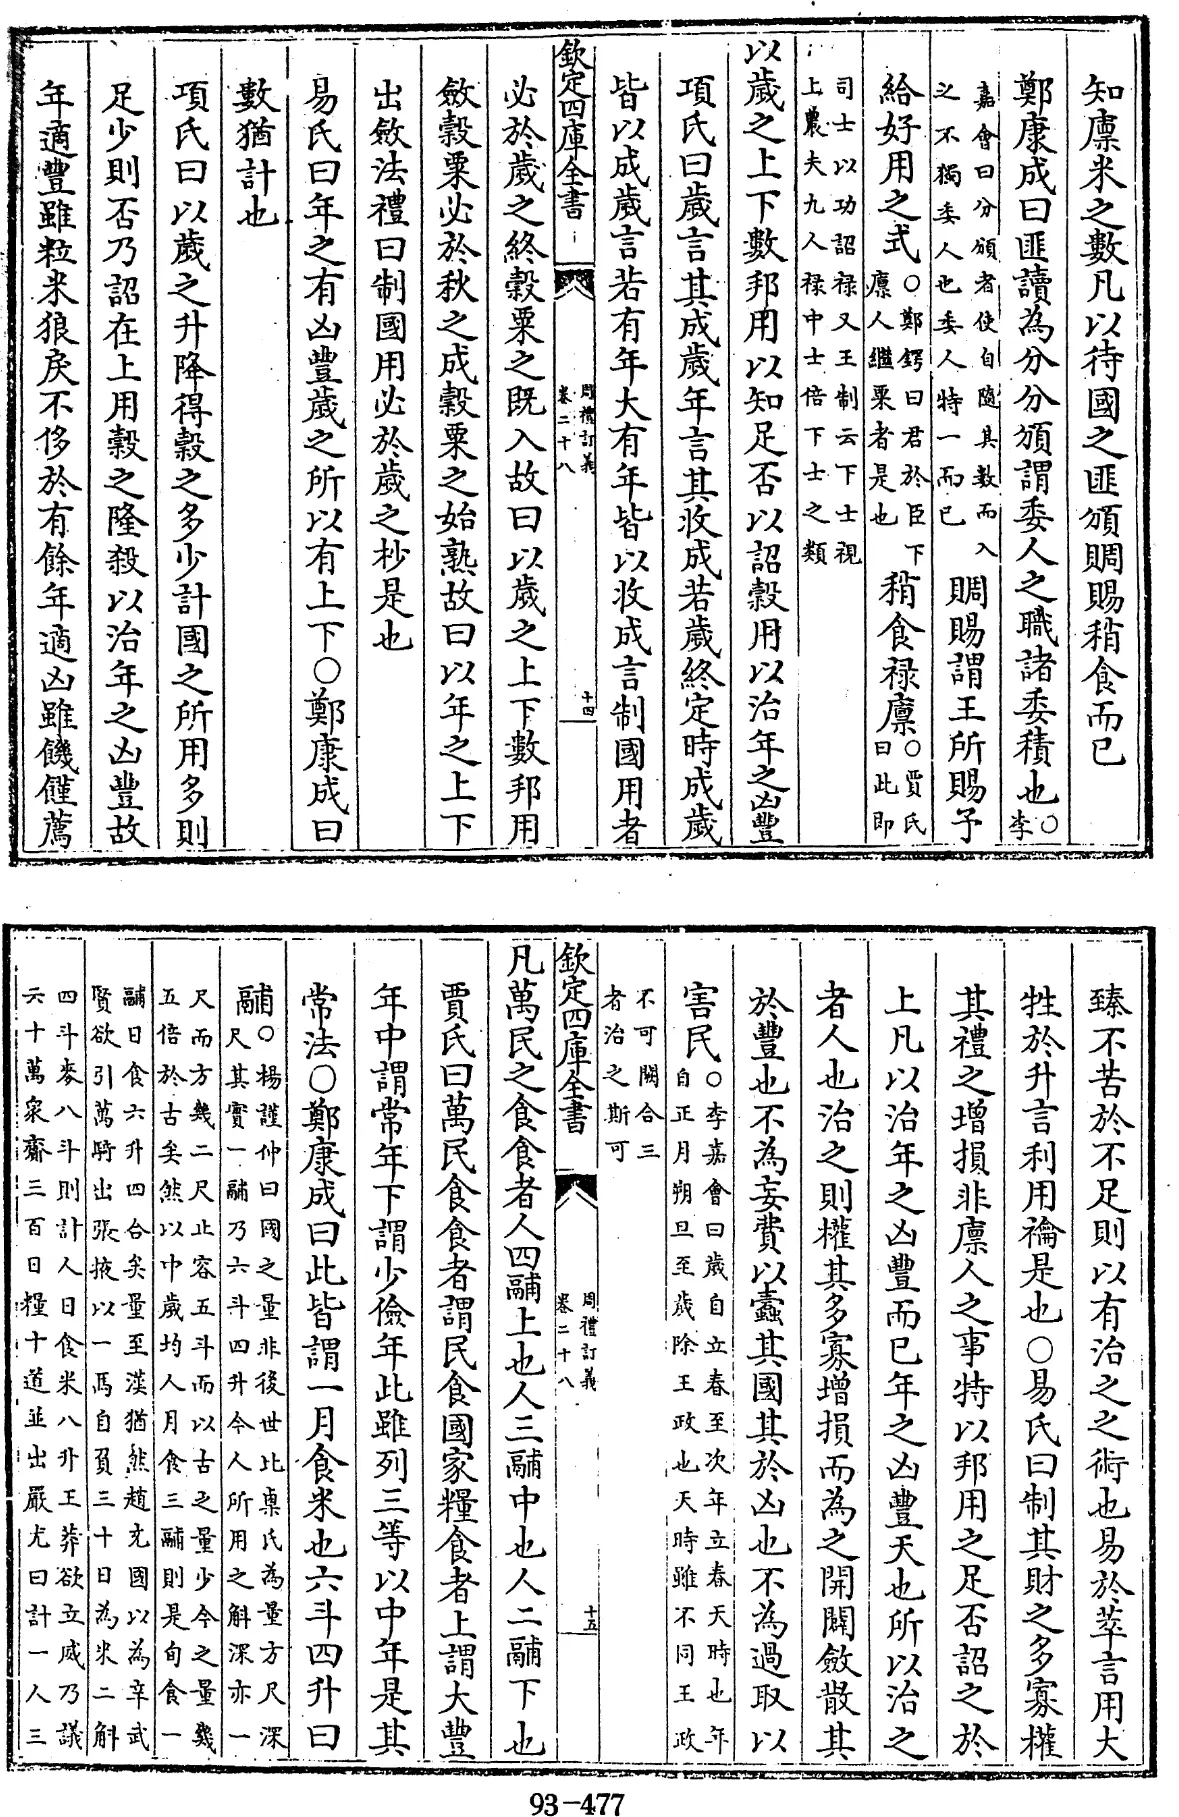 知廩米之數凡以待國之匪頒賙賜稍食而已
鄭康成曰匪讀為分分頒謂委人之職諸委積也○李
嘉會曰分頒者使自隨其數而入
之不獨委人也委人特一而已
賙賜謂王所賜予
給好用之式
○鄭鍔曰君於臣下
廩人繼粟者是也
稍食祿廩
○賈氏
曰此即
司士以功詔祿又王制云下士視
上農夫九人祿中士倍下士之類
以歲之上下數邦用以知足否以詔穀用以治年之凶豐
項氏曰歲言其成歲年言其收成若歲終定時成歲
皆以成歲言若有年大有年皆以收成言制國用者
欽定四庫全書
周禮訂義
卷二十八
十四
必於歲之終穀粟之既入故曰以歲之上下數邦用
斂穀粟必於秋之成穀粟之始熟故曰以年之上下
出斂法禮曰制國用必於歲之杪是也
易氏曰年之有凶豐歲之所以有上下○鄭康成曰
數猶計也
項氏曰以歲之升降得穀之多少計國之所用多則
足少則否乃詔在上用穀之隆殺以治年之凶豐故
年適豐雖粒米狼戾不侈於有餘年適凶雖饑饉薦
臻不苦於不足則以有治之之術也易於萃言用大
牲於升言利用禴是也○易氏曰制其財之多寡權
其禮之增損非廩人之事特以邦用之足否詔之於
上凡以治年之凶豐而已年之凶豐天也所以治之
者人也治之則權其多寡增損而為之開闢斂散其
於豐也不為妄費以蠹其國其於凶也不為過取以
害民
○李嘉會曰歲自立春至次年立春天時也年
自正月朔旦至歲除王政也天時雖不同王政
不可闕合三
者治之斯可
欽定四庫全書
周禮訂義
卷二十八
十五
凡萬民之食食者人四鬴上也人三鬴中也人二鬴下也
賈氏曰萬民食食者謂民食國家糧食者上謂大豐
年中謂常年下謂少儉年此雖列三等以中年是其
常法○鄭康成曰此皆謂一月食米也六斗四升曰
鬴
○楊謹仲曰國之量非後世比㮚氏為量方尺深
尺其實一鬴乃六斗四升今人所用之斛深亦一
尺而方幾二尺止容五斗而以古之量少今之量幾
五倍於古矣然以中歲均人月食三鬴則是旬食一
鬴日食六升四合矣量至漢猶然趙充國以為辛武
賢欲引萬騎出張掖以一馬自負三十日為米二斛
四斗麥八斗則計人日食米八升王莽欲立威乃議
六十萬眾齎三百日糧十道並出嚴尤曰計一人三
93-477